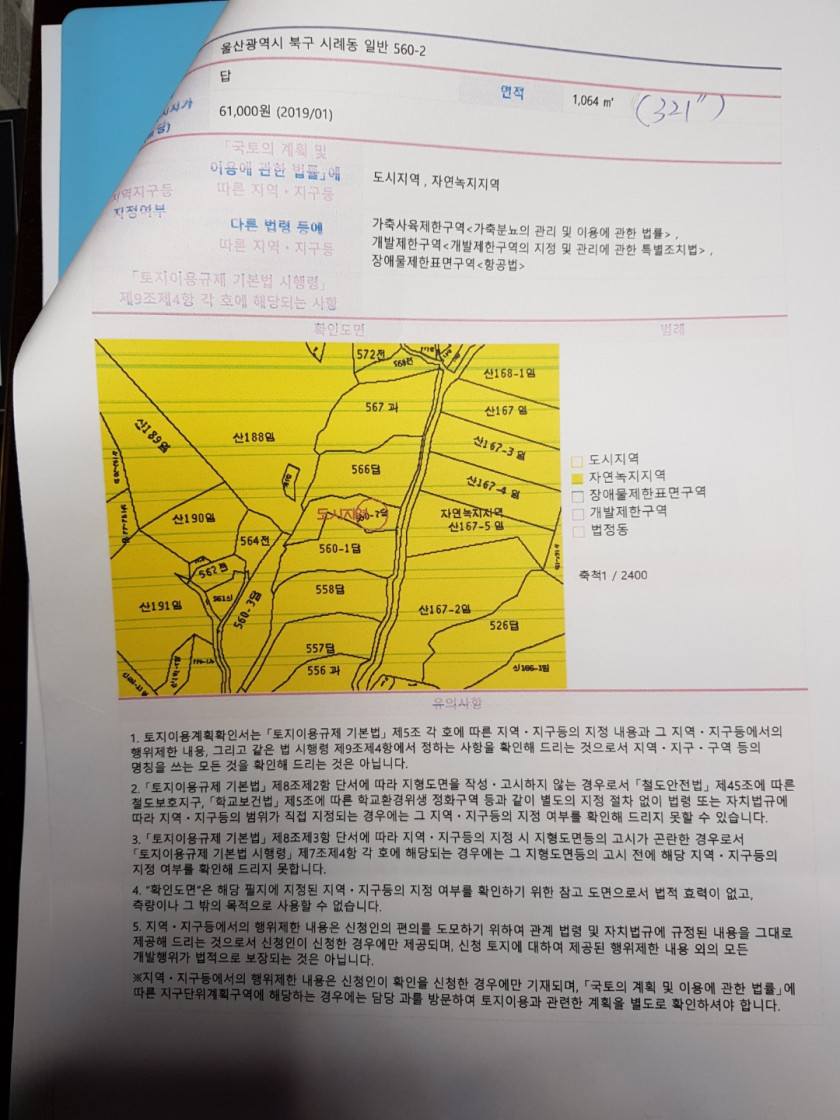 울산광역시 북구 시례동 일반 560-2
답
면적
1,064 ㎡
(321")
61,000원 (2019/01)
「국토의 계획 및
이용에 관한 법률」에
따른 지역・지구등
도시지역 , 자연녹지지역
지역지구등
지정여부
다른 법령 등에
따른 지역・지구등
가축사육제한구역<가축분뇨의 관리 및 이용에 관한 법률> ,
개발제한구역<개발제한구역의 지정 및 관리에 관한 특별조치법> ,
장애물제한표면구역<항공법>
「토지이용규제 기본법 시행령」
제9조제4항 각 호에 해당되는 사항
확인도면
범례
572전
568전
산168-1임
567 과
산167 임
산189임
산188임
산167-3 임
566답
산167-4 임
도시지역
560-2답
자연녹지지역
산167-5 임
산190임
564전
560-1답
562전
561전
558답
산191임
560-3답
산167-2임
526답
557답
556 과
산166-1임
도시지역
자연녹지지역
장애물제한표면구역
개발제한구역
법정동
축척1 / 2400
유의사항
1. 토지이용계획확인서는「토지이용규제 기본법」제5조 각 호에 따른 지역・지구등의 지정 내용과 그 지역・지구등에서의
행위제한 내용, 그리고 같은 법 시행령 제9조제4항에서 정하는 사항을 확인해 드리는 것으로서 지역・지구・구역 등의
명칭을 쓰는 모든 것을 확인해 드리는 것은 아닙니다.
2.「토지이용규제 기본법」제8조제2항 단서에 따라 지형도면을 작성・고시하지 않는 경우로서「철도안전법」제45조에 따른
철도보호지구,「학교보건법」제5조에 따른 학교환경위생 정화구역 등과 같이 별도의 지정 절차 없이 법령 또는 자치법규에
따라 지역・지구등의 범위가 직접 지정되는 경우에는 그 지역・지구등의 지정 여부를 확인해 드리지 못할 수 있습니다.
3.「토지이용규제 기본법」제8조제3항 단서에 따라 지역・지구등의 지정 시 지형도면등의 고시가 곤란한 경우로서
「토지이용규제 기본법 시행령」제7조제4항 각 호에 해당되는 경우에는 그 지형도면등의 고시 전에 해당 지역・지구등의
지정 여부를 확인해 드리지 못합니다.
4. "확인도면"은 해당 필지에 지정된 지역・지구등의 지정 여부를 확인하기 위한 참고 도면으로서 법적 효력이 없고,
측량이나 그 밖의 목적으로 사용할 수 없습니다.
5. 지역・지구등에서의 행위제한 내용은 신청인의 편의를 도모하기 위하여 관계 법령 및 자치법규에 규정된 내용을 그대로
제공해 드리는 것으로서 신청인이 신청한 경우에만 제공되며, 신청 토지에 대하여 제공된 행위제한 내용 외의 모든
개발행위가 법적으로 보장되는 것은 아닙니다.
※지역・지구등에서의 행위제한 내용은 신청인이 확인을 신청한 경우에만 기재되며,「국토의 계획 및 이용에 관한 법률」에
따른 지구단위계획구역에 해당하는 경우에는 담당 과를 방문하여 토지이용과 관련한 계획을 별도로 확인하셔야 합니다.